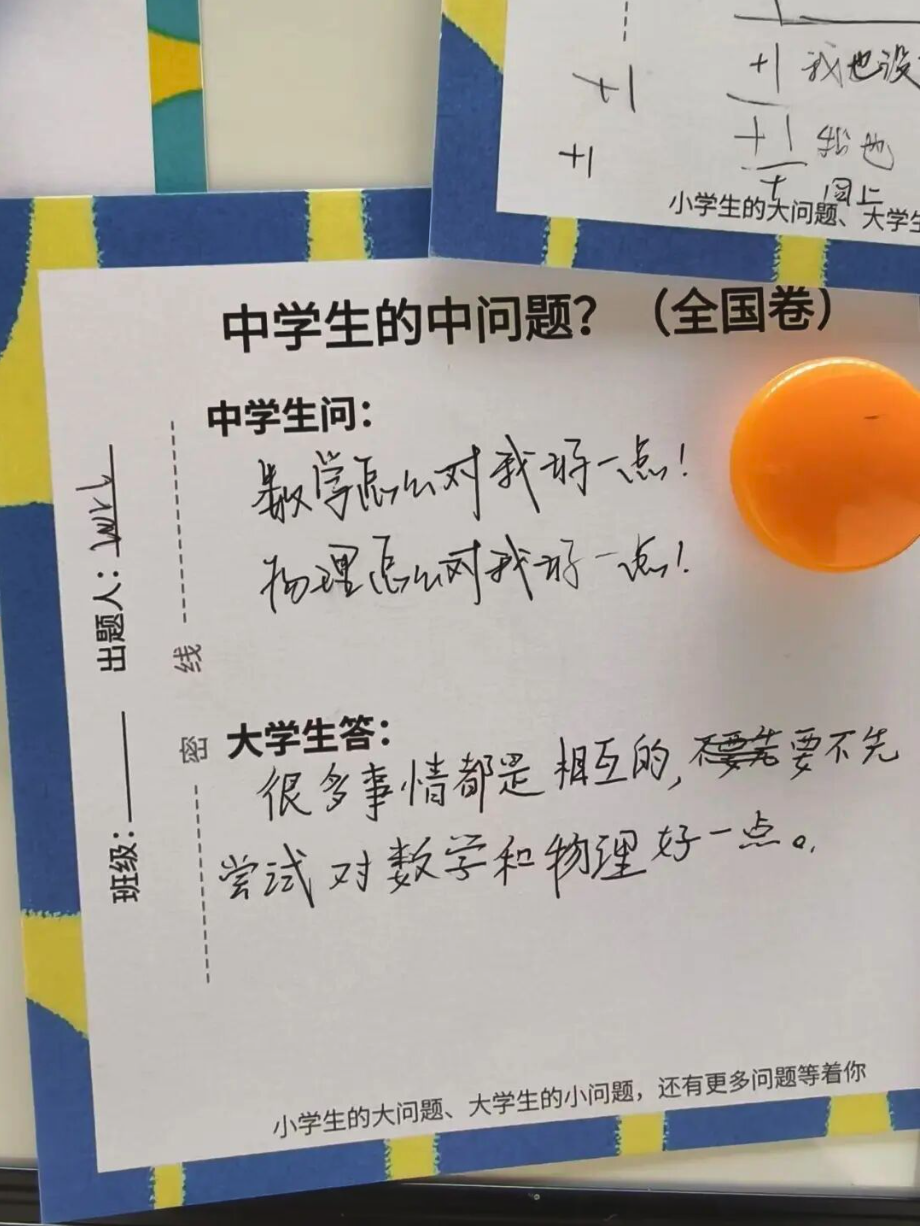 +1
+1 我也没
+1
+1 我也
+ 同上
小学生的大问题、大学生
中学生的中问题？（全国卷）
中学生问：
数学怎么对我好一点！
物理怎么对我好一点！
出题人：
班级：
线
密
大学生答：
很多事情都是相互的，不要先要不先
尝试对数学和物理好一点。
小学生的大问题、大学生的小问题，还有更多问题等着你